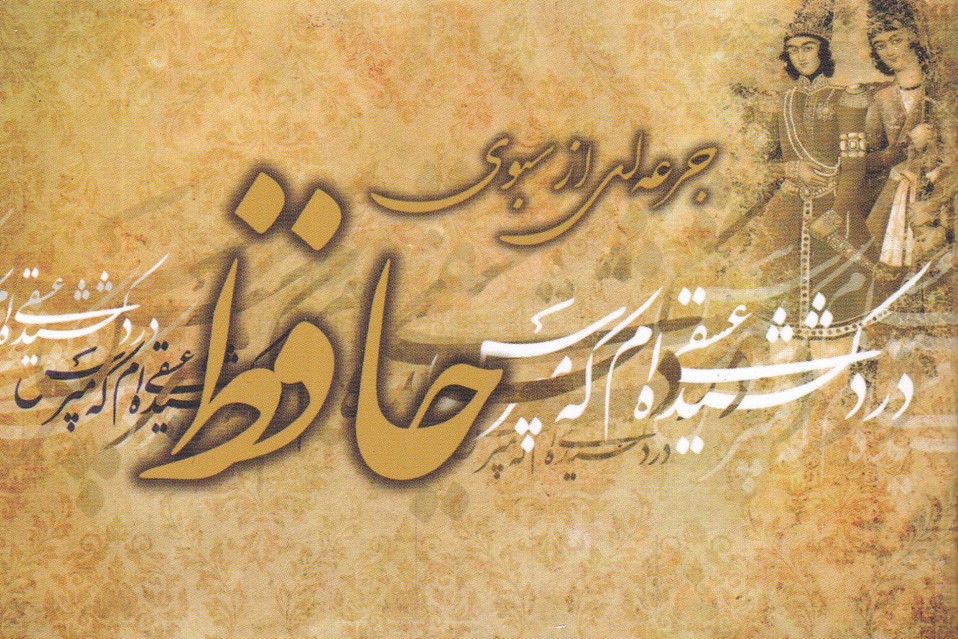 جرعه‌ای از سبوی
حافظ
درد عشقی کشیده‌ام که مپرس
درد عشقی کشیده‌ام که مپرس
عشقی کشیده‌ام که مپرس
درد کشیده‌ام که مپرس